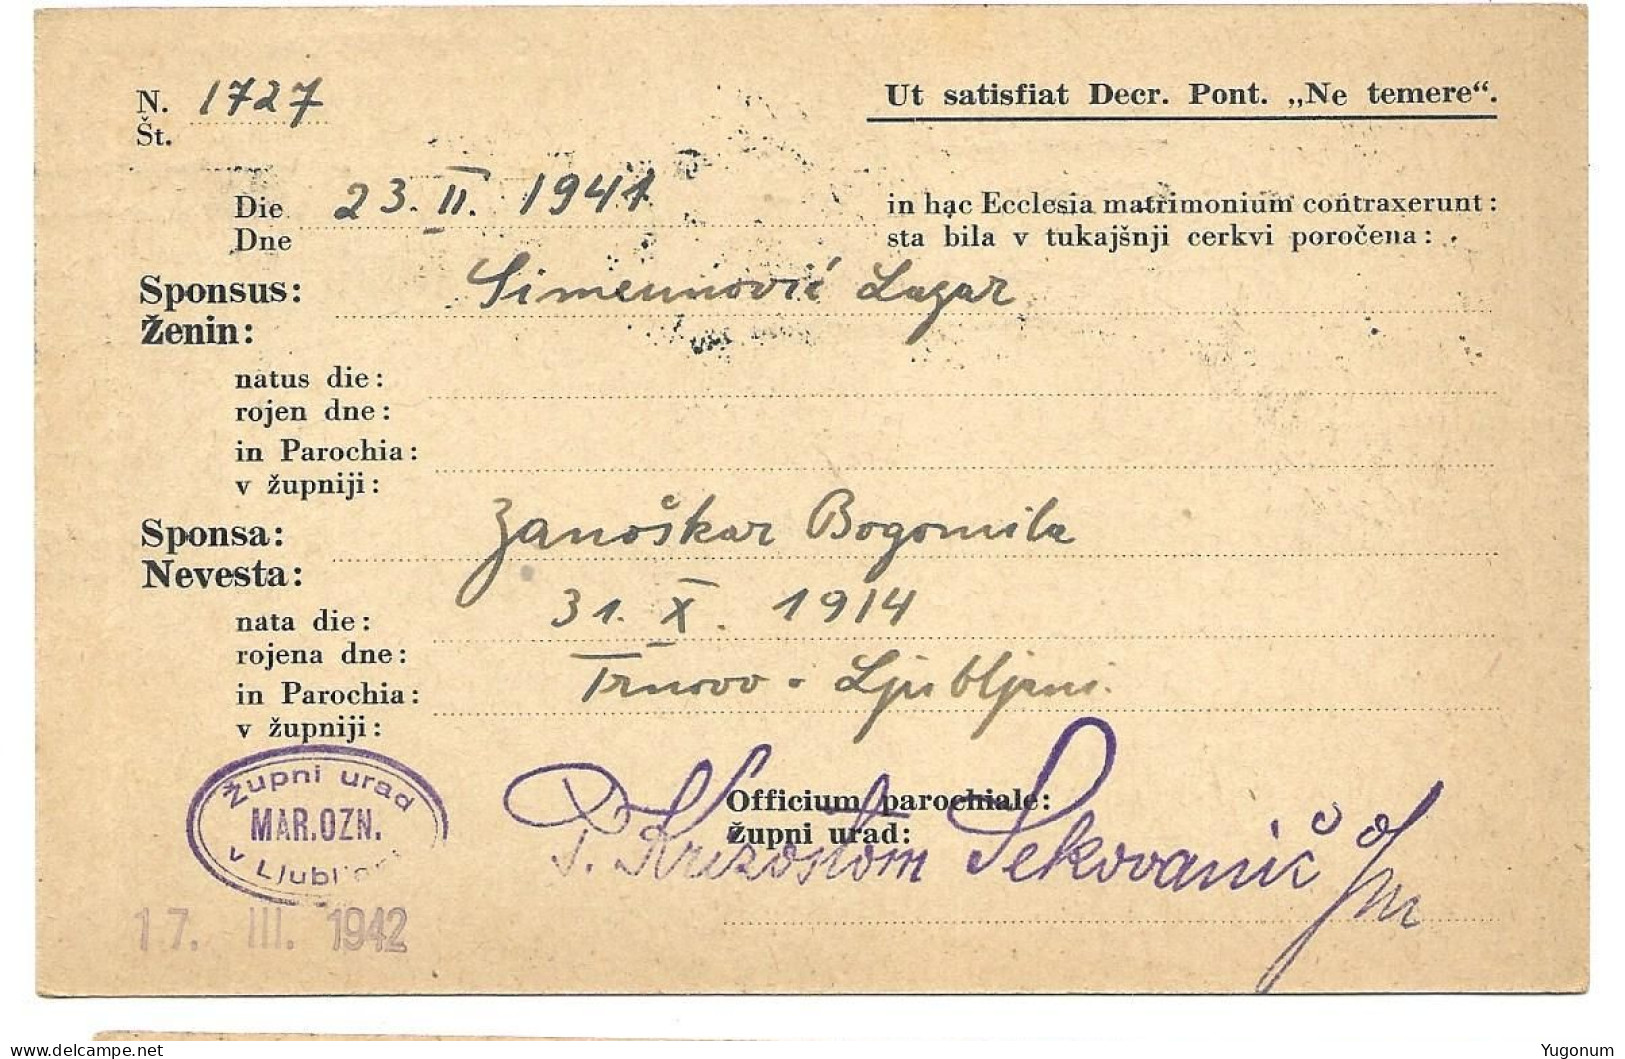 N. 1727
Št.
Ut satisfiat Decr. Pont. „Ne temere“.
Die 23. II. 1941
Dne
in hac Ecclesia matrimonium contraxerunt:
sta bila v tukajšnji cerkvi poročena:
Sponsus: Simeunović Lazar
Ženin:
natus die:
rojen dne:
in Parochia:
v župniji:
Sponsa: Zanoškar Bogomila
Nevesta:
nata die: 31. X. 1914
rojena dne:
in Parochia: Trnovo - Ljubljani
v župniji:
Župni urad
MAR. OZN.
v Ljubljani
17. III. 1942
Officium parochiale:
župni urad:
P. Krizostom Sekovanič
delcampe.net
Yugonum